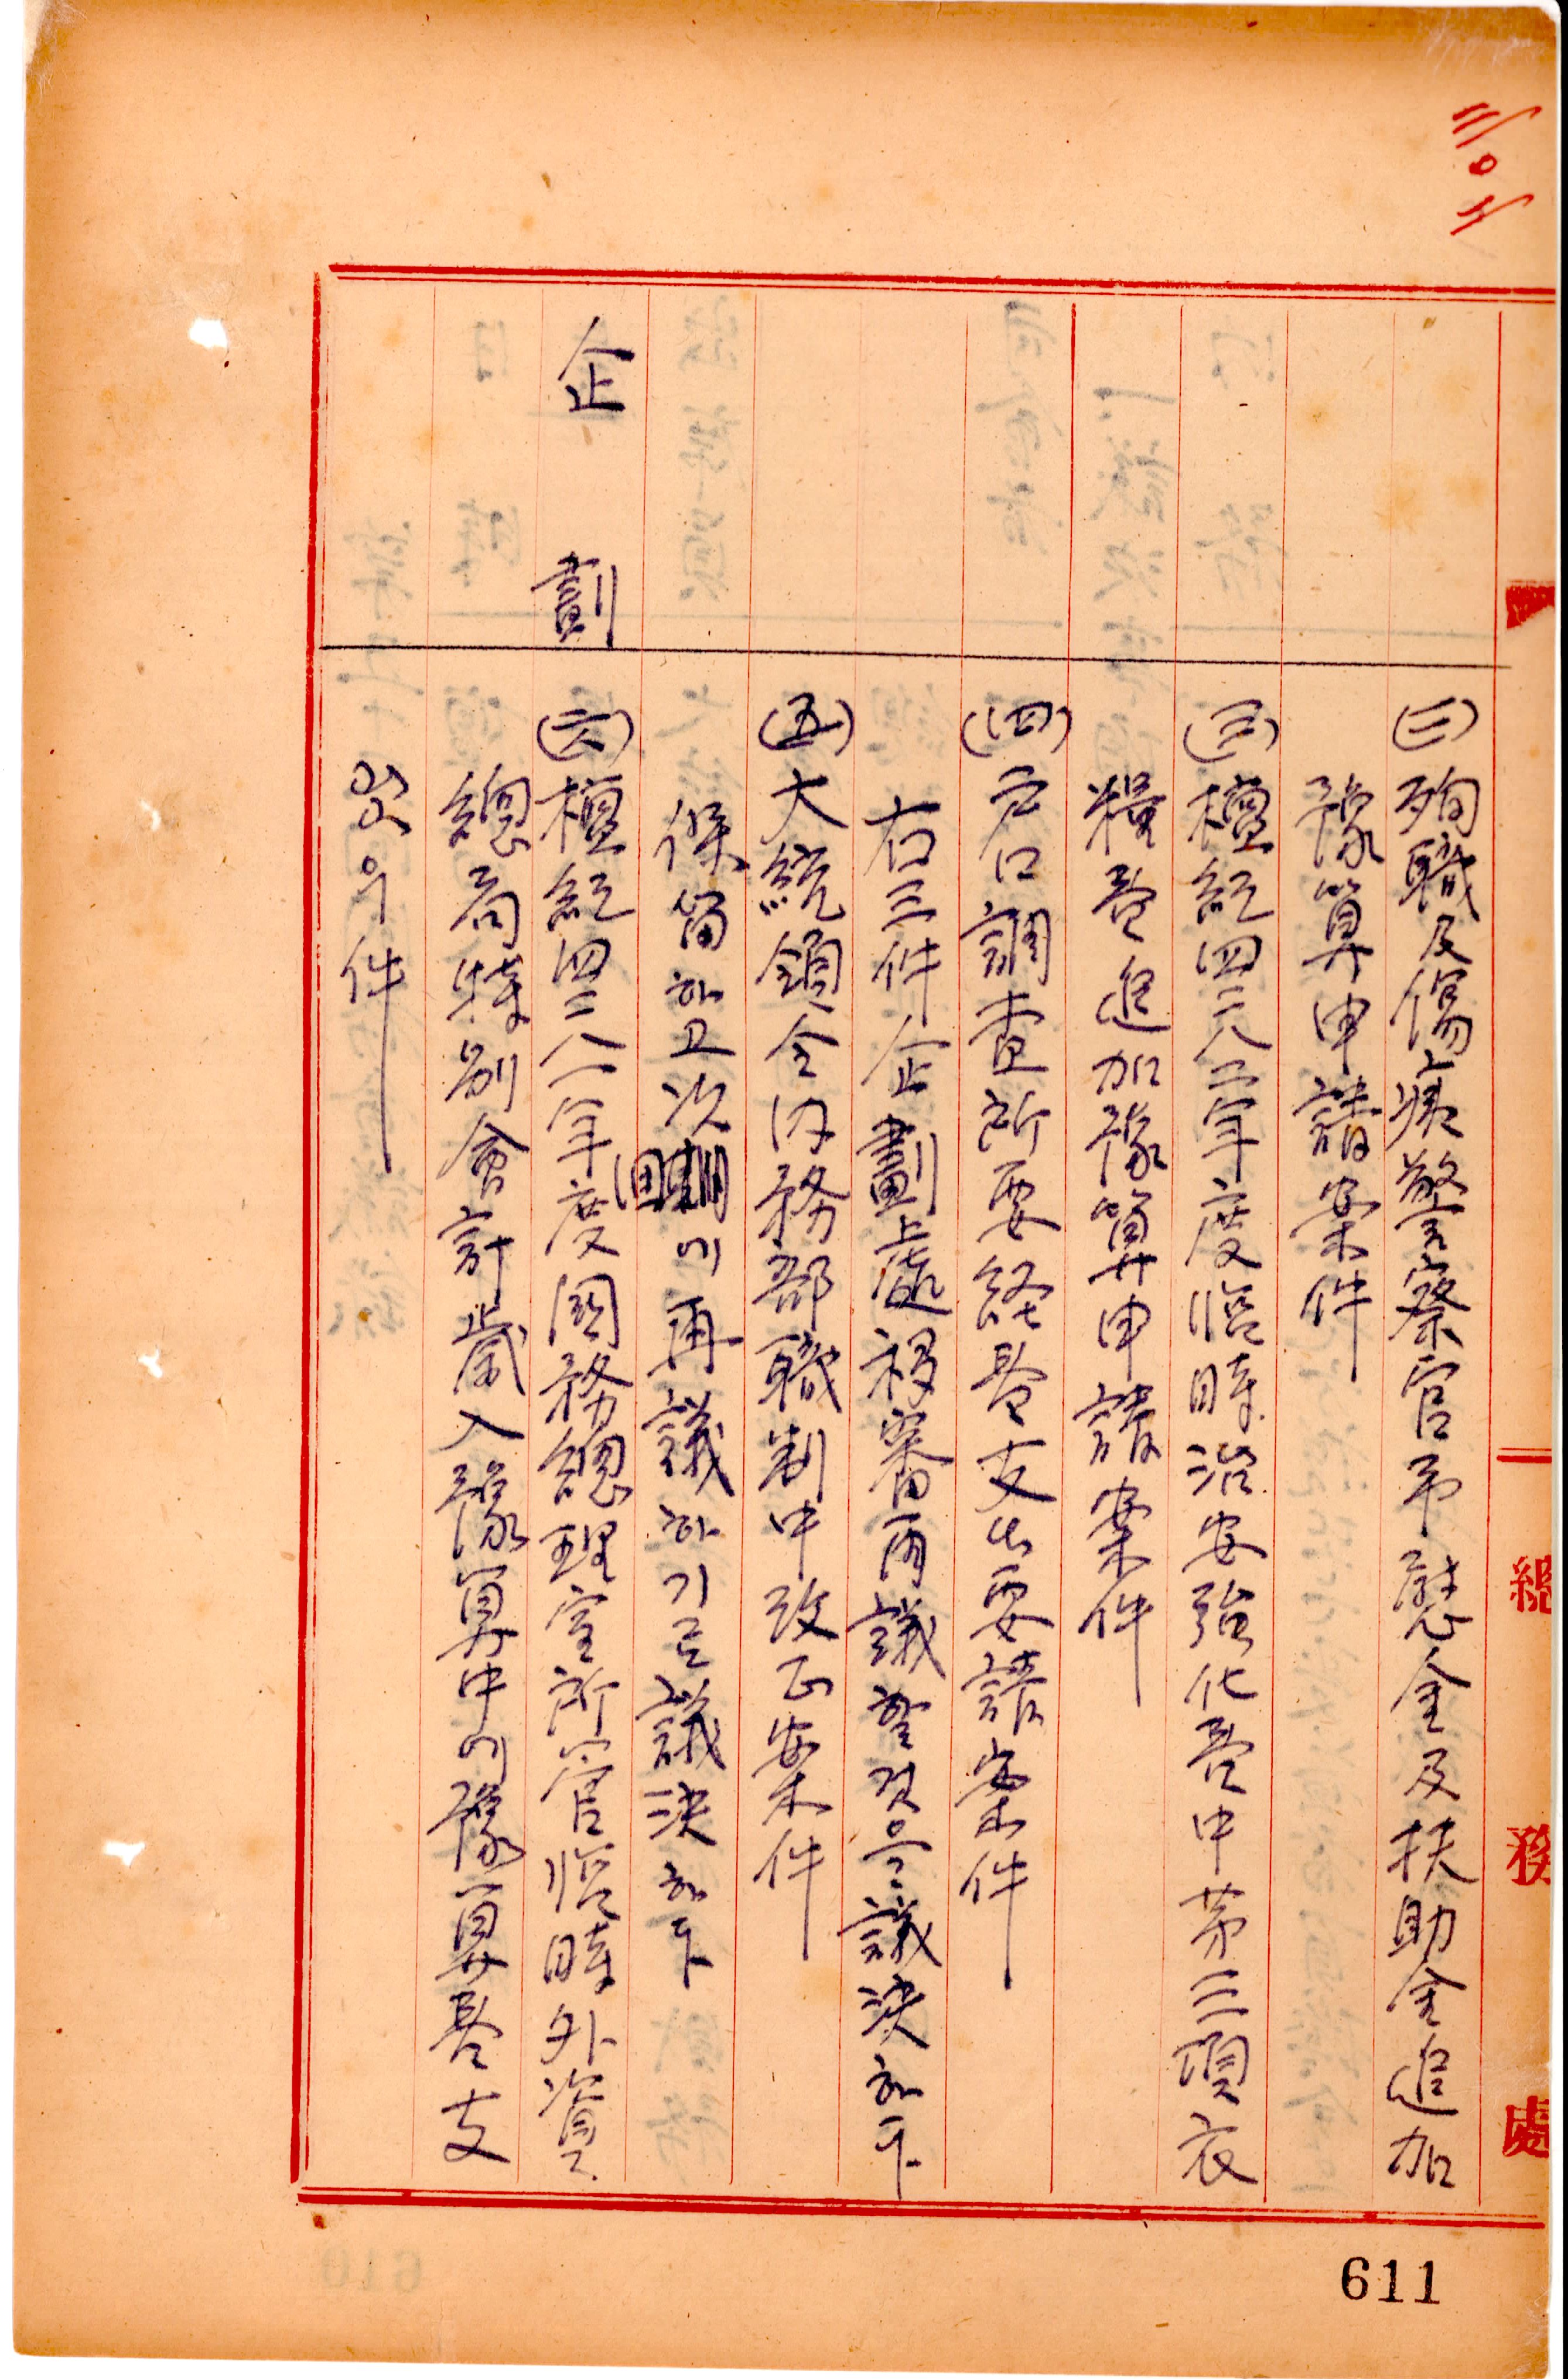 二〇二
總務處
(二)殉職及傷痍警察官吊慰金及扶助金追加
豫算申請案件
(三)檀紀四二八二年度臨時治安强化費中第三項衣
糧費追加豫算申請案件
(四)戶口調査所要経費支出要請案件
右三件企劃處移審 議할것으로議決하다
(五)大統領令內務部職制中改正案件
保留하고次回에再議하기로議決하다
企劃
(六)檀紀四二八一年度國務總理室所管臨時外資
總局特別會計歲入豫算中에豫算支
出의件
611